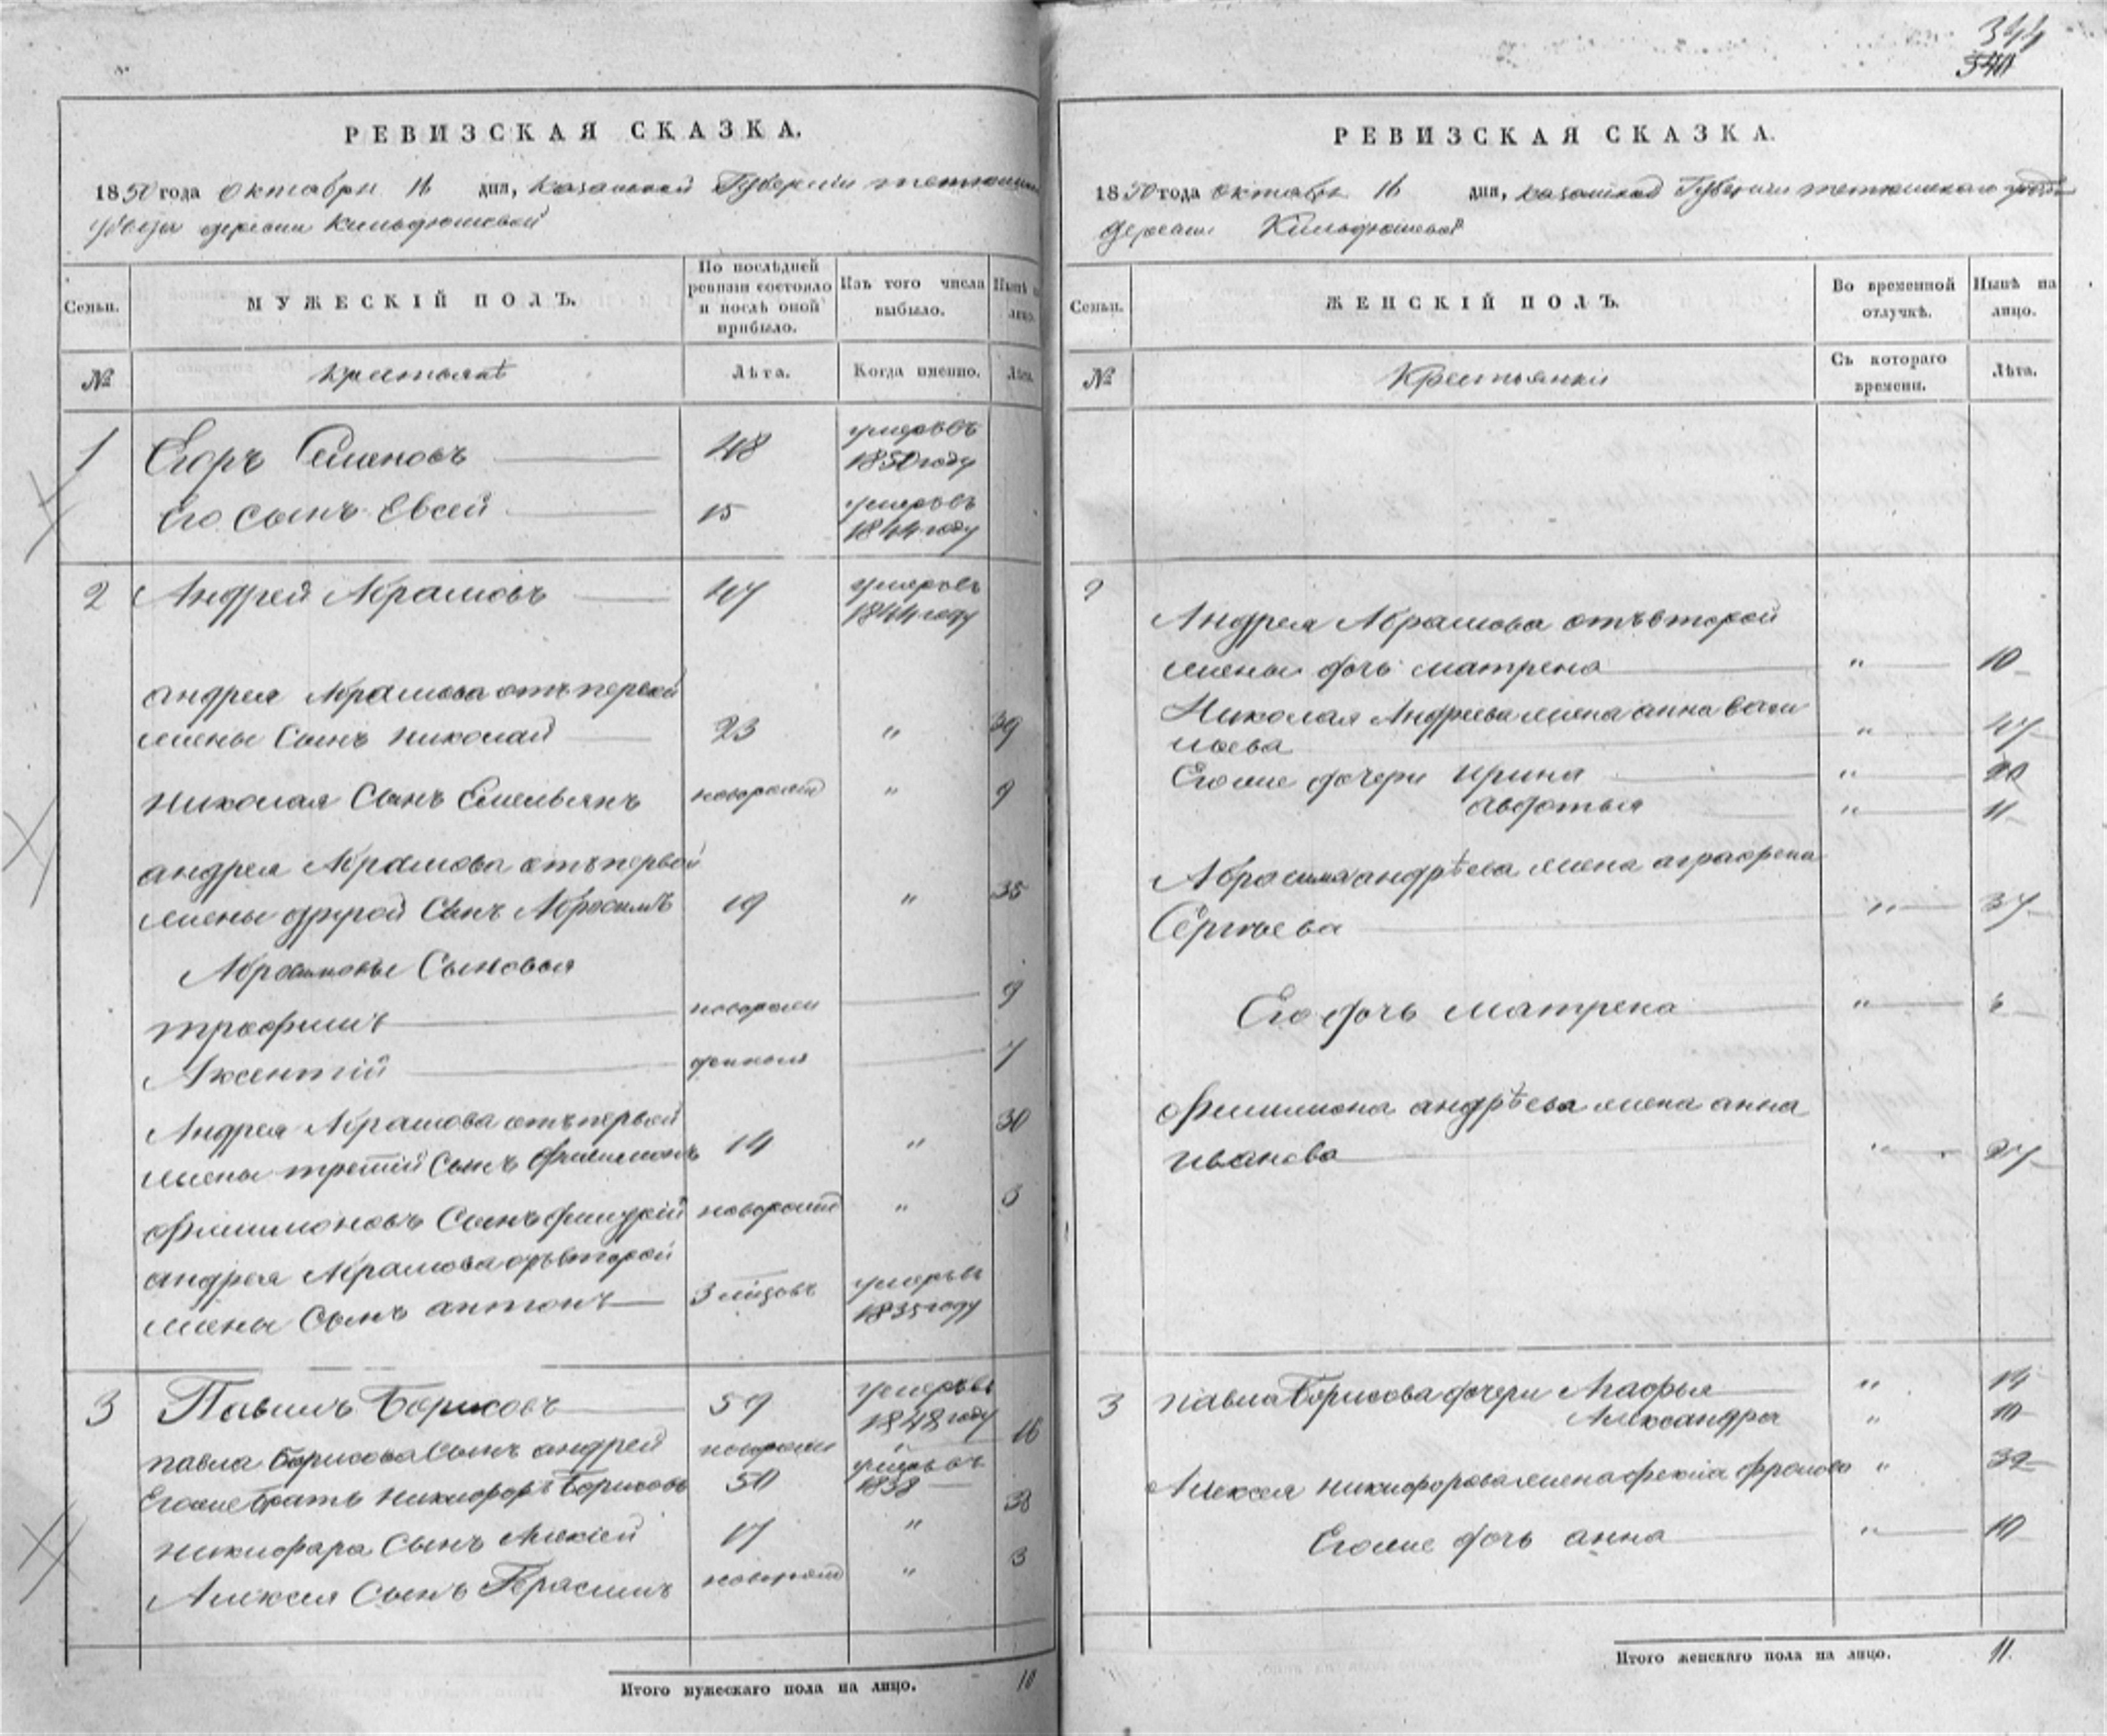 344
РЕВИЗСКАЯ СКАЗКА.
1850 года октября 16 дня, Казанской Губернии тетюшскаго
уѣзда деревни Кильдюшевой
Семьи. МУЖЕСКІЙ ПОЛЪ. По послѣдней ревизіи состояло и послѣ оной прибыло. Изъ того числа выбыло. Нынѣ на лицо.
№ крестьянѣ Лѣта. Когда именно. Лѣта.
1 Егоръ Семеновъ 48 умеръ въ 1850 году
Его сынъ Евсей 15 умеръ въ 1844 году
2 Андрей Абрамовъ 47 умеръ въ 1844 году
андрея Абрамова отъ первой
жены Сынъ николай 23 " 39
николая Сынъ Емельянъ новорожд " 9
андрея Абрамова отъ первой
жены другой Сынъ Абросимъ 19 " 35
Абросимовы Сыновья
трофимъ новорожд 9
Аксентій 7
Андрея Абрамова отъ первой
жены третій Сынъ Филимонъ 14 " 30
Филимоновъ Сынъ новорожд " 3
андрея Абрамова отъ второй
жены Сынъ антонъ 3 мѣсцовъ умеръ въ 1835 году
3 Павелъ Борисовъ 59 умеръ въ 1848 году
павла Борисова Сынъ андрей новорожд " 16
Егоже братъ никифоръ Борисовъ 50 умеръ въ 1838
никифара Сынъ Алексей 17 " 33
Алексея Сынъ Герасимъ новорожд " 3
Итого мужескаго пола на лицо. 10
РЕВИЗСКАЯ СКАЗКА.
1850 года октября 16 дня, казанской Губернии тетюшскаго уѣзда
деревни Кильдюшевой
Семьи. ЖЕНСКІЙ ПОЛЪ. Во временной отлучкѣ. Нынѣ на лицо.
№ Крестьянки Съ котораго времени. Лѣта.
2
Андрея Абрамова отъ второй
жены дочь матрена " 10
Николая Андреева жена анна васи
льева " 47
Егоже дочери Ирина "
авдотья " 11
Абросима андрѣева жена аграфена
Сергѣева " 37
Его дочь матрена " 6
Филимона андрѣева жена анна
иванова " 27
3 павла Борисова дочери Агафья " 14
Александра " 10
Алексея никифорова жена фекла фролова " 32
Егоже дочь анна " 10
Итого женскаго пола на лицо. 11.